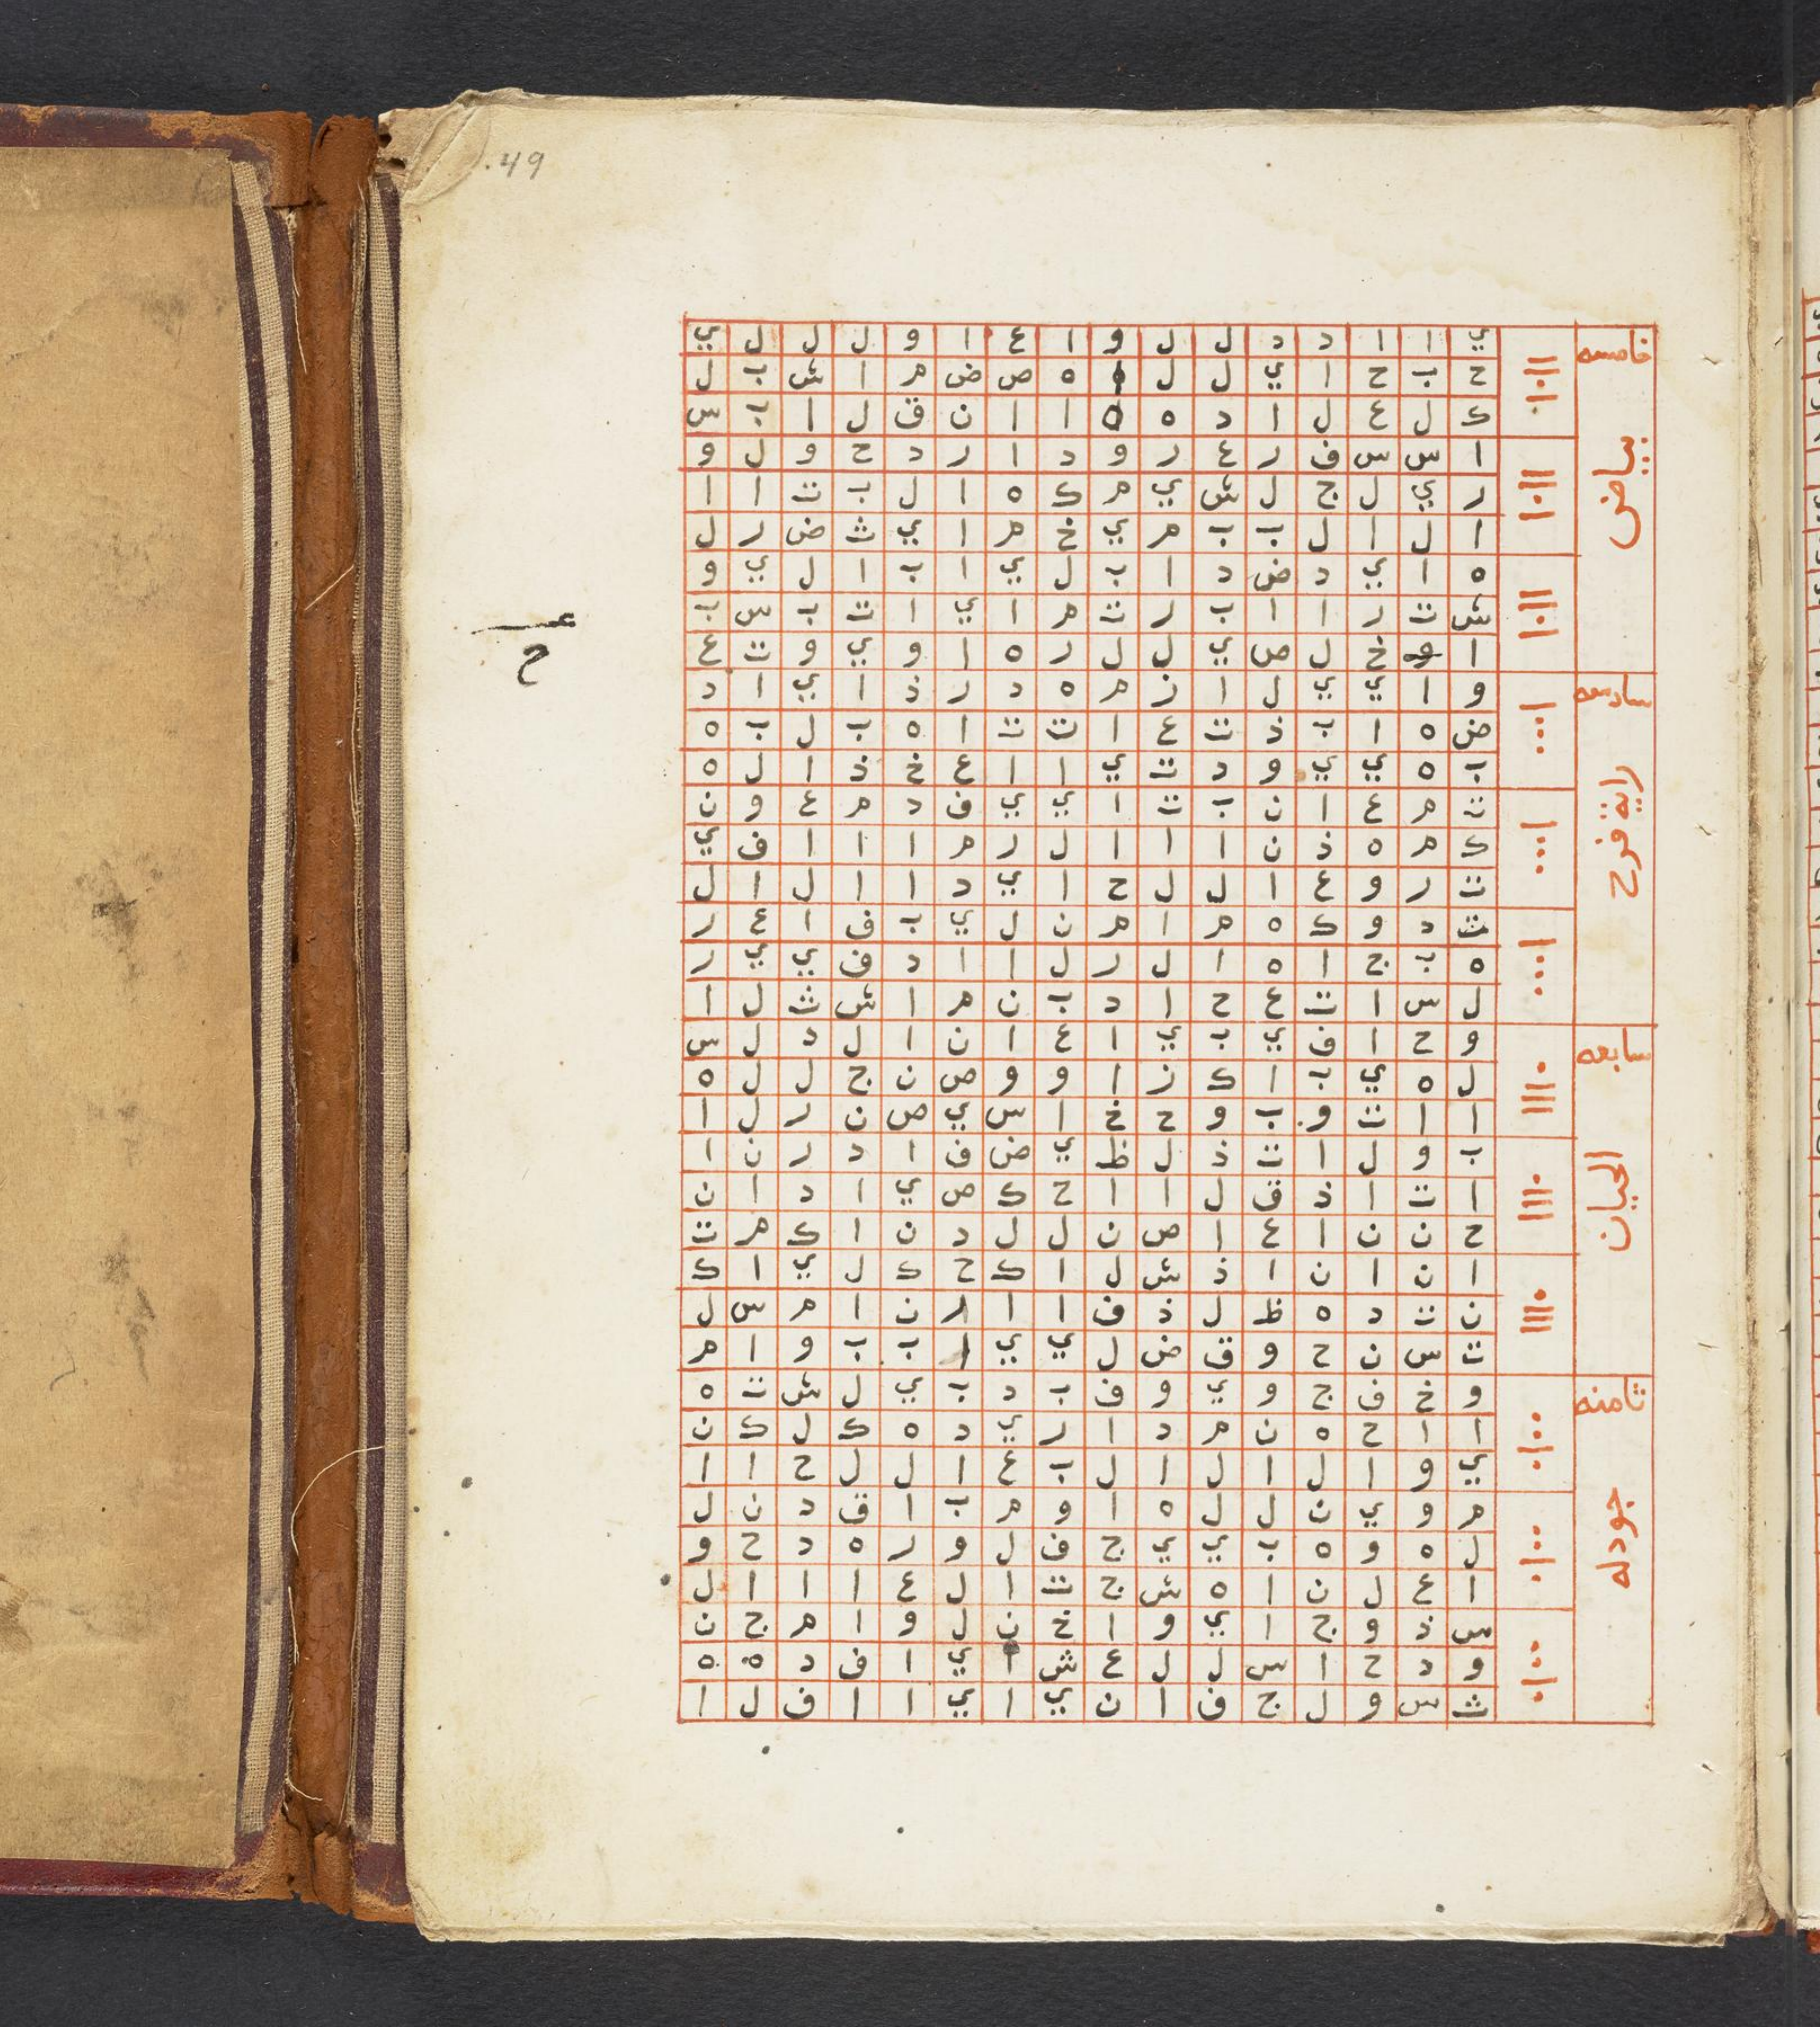 49
خامسه
بياض
ي ا ا د د ل ل و ا ع ا و ل ل ل ي
ح ب ح ا ي ل ل ه ص ض م ا ش ب ل
ك ل ع ل ا د ه ه ا ا ن ق ل ا ب س
ا س س ف ر ع ر و د ا ر د ح و ل و
ر ي ل ج ل ش ي م ك ه ا ل ب ت ا ا
ا ل ا ل ب ب م ي خ م ا ي ث ض ر ل
ه ا ي د ض د ا ب ل ي ا ب ا ل ي و
ش ت ر ا ا ب ر ت م ا ي ا ت ب س ب
ا و خ ل ص ي ل ل ر ه ا و ي و ت ع
ح
سادسه
راية فرح
و ا ي ي ل ا ز م ه د ر ذ ا ي ا د
ض ه ا ب ذ ت ع ا ت ت ا ه ب ل ب ه
ب ه ي ي و د ت ي ا ا ع خ ذ ا ل ه
ت م ع ا ن ب ت ا ي ي ف د م ع و ن
ك م ه ذ ن ا ا ا ل ر م ا ا ا ف ي
ت ر و ع ا ل ل ح ا ي د ا ا ل ا ل
ث د و ك ه م ا م ن ل ي ب ف ا ع ر
ه ب ج ا ه ا ل ر ل ا ا د ف ي ي ر
ل س ا ت ع ح ا د ب ن م ا ش ث ل ا
سابعه
الحيان
و ح ا ف ي ب ي ا ع ا ن ا ل د ل س
ل ه ي ب ا ك ز ا و و ص ن ج ل ل ه
ا ا ت و ب و ح خ ا س ي ص ن ر ل ا
ب و ل ا ت ذ ل ظ ي ض ف ا د ر ن ا
ا ت ا ذ ق ل ا ا ح ك ص ي ا د ا ن
ح ن ن ا ع ا ص ن ل ل د ن ا ك م ت
ا ن ا ن ا ذ ش ل ا ك ح ك ل ي ا ك
ن ت د ه ظ ل ذ ف ا ا ر ن ا م س ل
ت س ن ح و ق ض ل ي ي ا ب ب و ا م
ثامنه
جودله
و خ ف ج و ي و ف ب د ب ي ل ش ت ه
ا ا ح ه ن م د ا ر ي د ه ك ل ك ن
ي و ا ل ا ل ا ل ب ع ا ل ل ح ا ا
م و ي ن ل ل ه ا و م ب ا ق د ن ل
ل ه و ه ب ي ي ج ف ل و ر ه د ح و
ا ع ل ن ا ه ش ج ت ا ل ع ا ا ا ل
س ذ و ج ا ي و ا خ ن ل و ا م ج ن
و د ح ا س ل ل ع ش ا ي ا ف د ة ه
ث س و ل ج ف ا ن ي ا ي ا ا ف ل ا